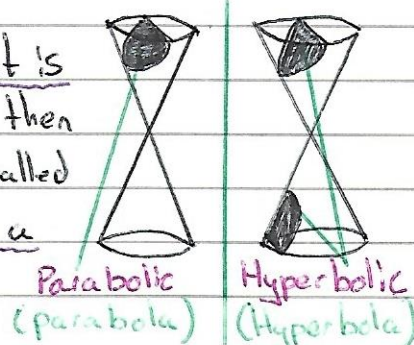 t is
then
alled
a
Parabolic
(parabola)
Hyperbolic
(Hyperbola)